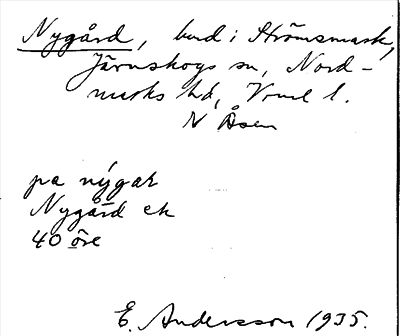 Nygård, bud i Strömsmark,
Järnskogs sn, Nord-
marks hd, Vrml l.
N Åsen
pa nýgaʀ
Nygård ek
40 öre
E. Andersson 1935.